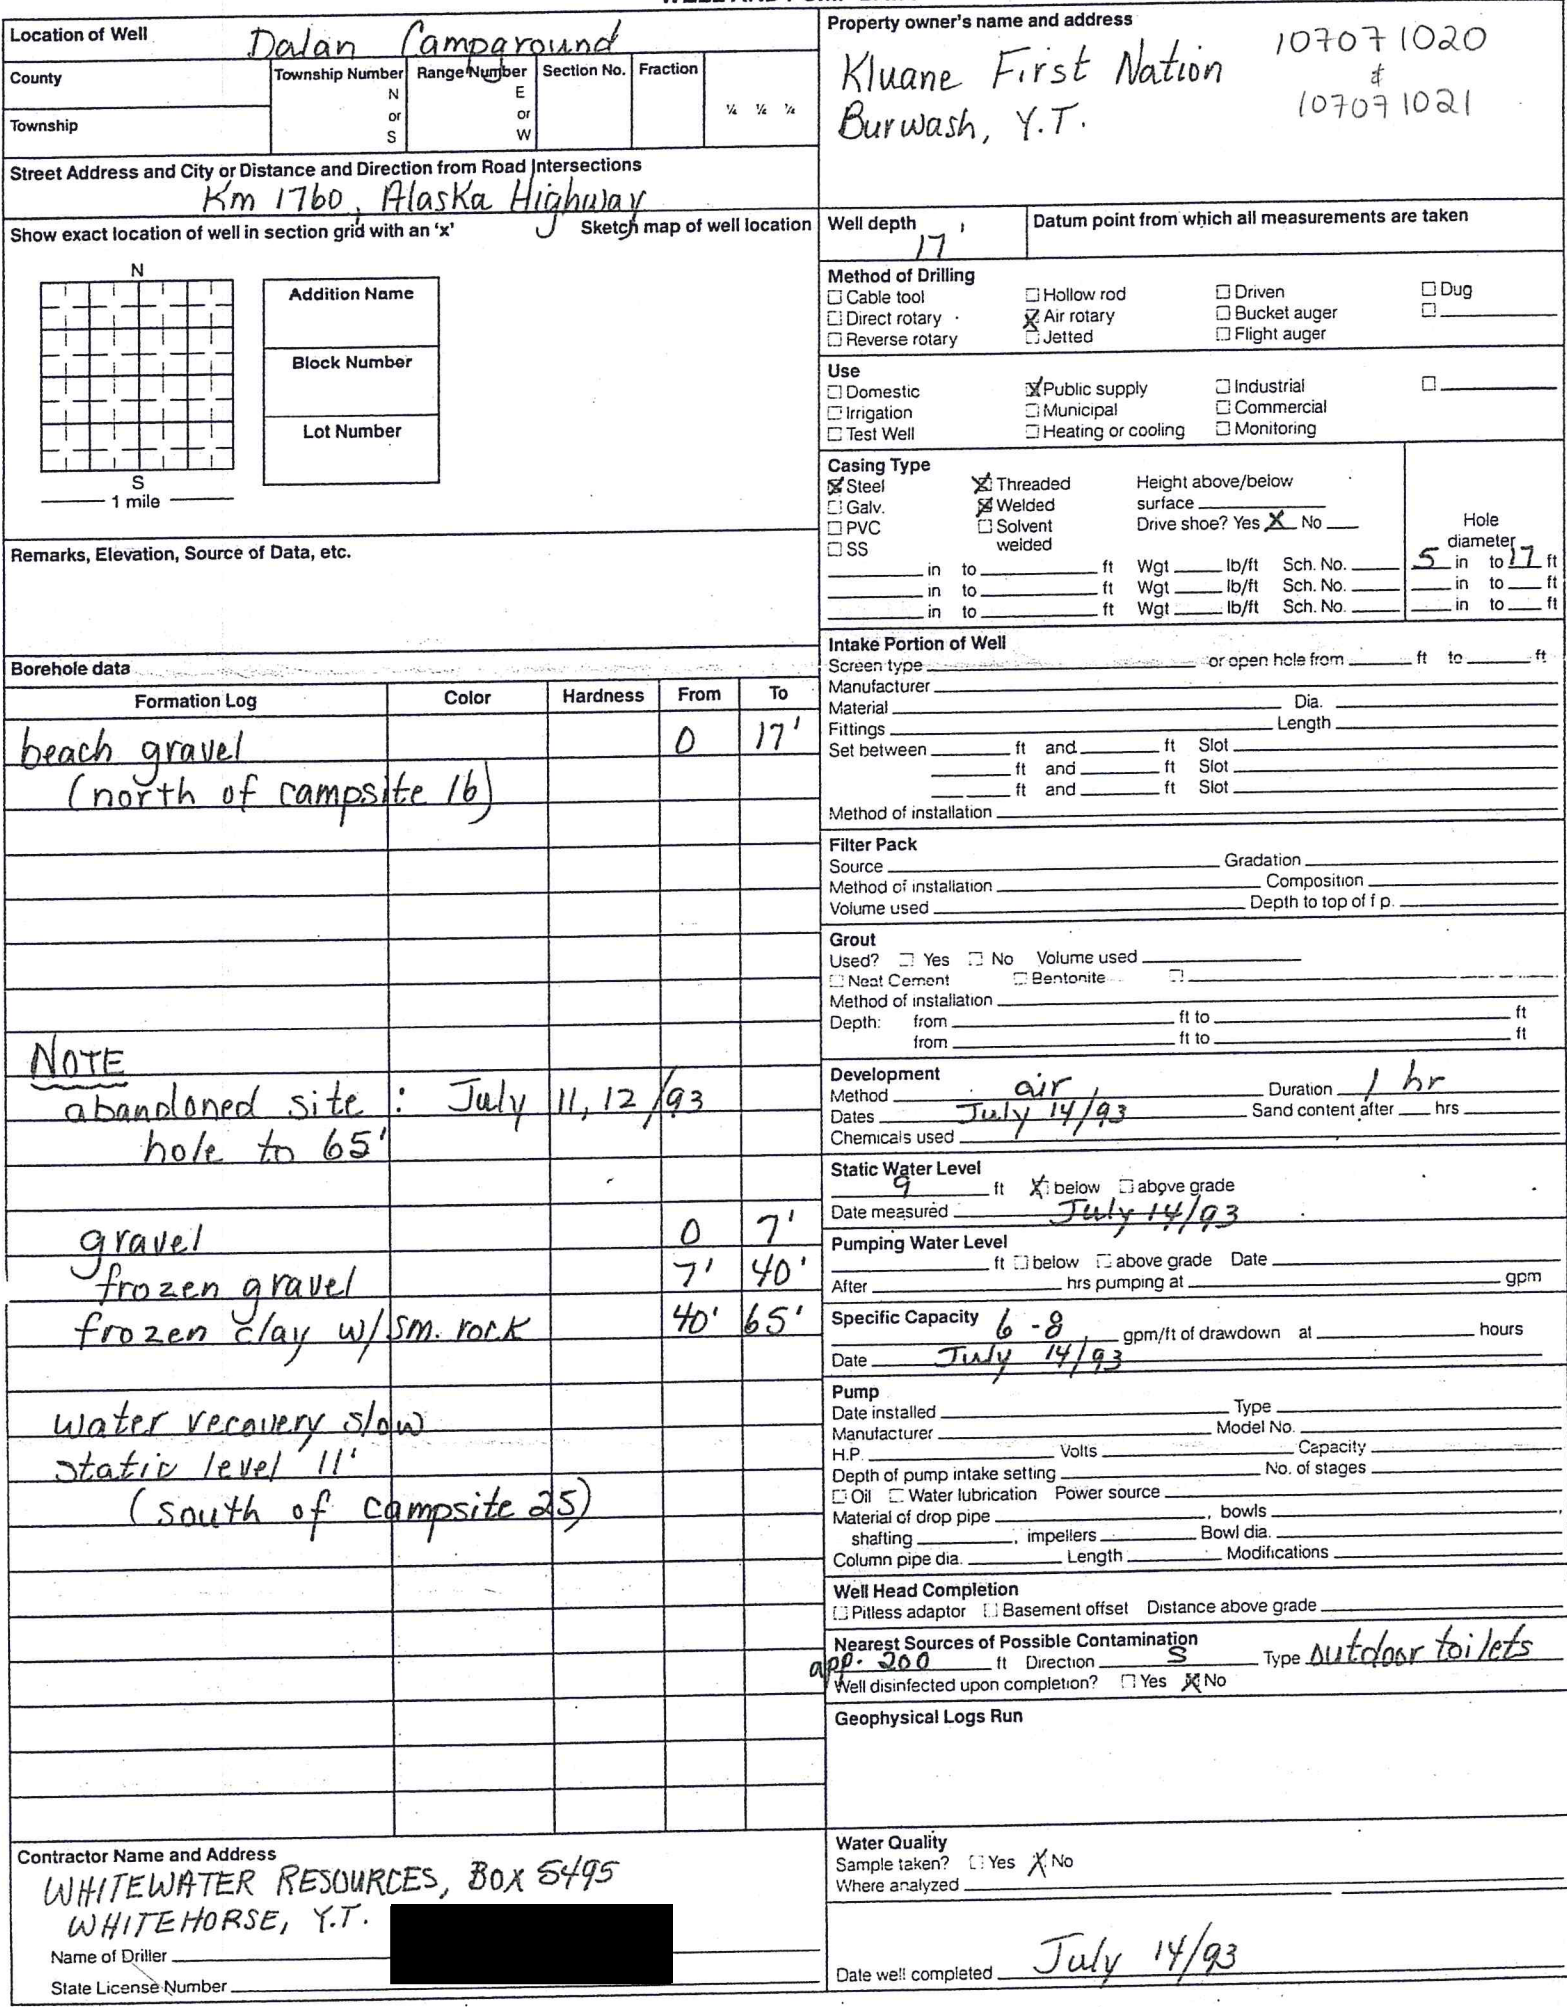 Location of Well Dalan Campground
County
Township Number N or S
Range Number E or W
Section No.
Fraction
¼ ¼ ¼
Township
Street Address and City or Distance and Direction from Road Intersections
Km 1760, Alaska Highway
Show exact location of well in section grid with an 'x'
Sketch map of well location
N
S
1 mile
Addition Name
Block Number
Lot Number
Remarks, Elevation, Source of Data, etc.
Borehole data
Formation Log Color Hardness From To
beach gravel 0 17'
(north of campsite 16)
NOTE
abandoned site : July 11, 12/93
hole to 65'
gravel 0 7'
frozen gravel 7' 40'
frozen clay w/ sm. rock 40' 65'
water recovery slow
static level 11'
(south of campsite 25)
Contractor Name and Address
WHITEWATER RESOURCES, BOX 5495
WHITEHORSE, Y.T.
Name of Driller
State License Number
Property owner's name and address
Kluane First Nation
Burwash, Y.T.
107071020
&
107071021
Well depth 17'
Datum point from which all measurements are taken
Method of Drilling
Cable tool Hollow rod Driven Dug
Direct rotary X Air rotary Bucket auger
Reverse rotary Jetted Flight auger
Use
Domestic X Public supply Industrial
Irrigation Municipal Commercial
Test Well Heating or cooling Monitoring
Casing Type
X Steel X Threaded Height above/below
Galv. X Welded surface
PVC Solvent Drive shoe? Yes X No
SS welded
Hole
diameter
in to ft Wgt lb/ft Sch. No. 5 in to 17 ft
in to ft Wgt lb/ft Sch. No. in to ft
in to ft Wgt lb/ft Sch. No. in to ft
Intake Portion of Well
Screen type or open hole from ft to ft
Manufacturer
Material Dia.
Fittings Length
Set between ft and ft Slot
ft and ft Slot
ft and ft Slot
Method of installation
Filter Pack
Source Gradation
Method of installation Composition
Volume used Depth to top of f.p.
Grout
Used? Yes No Volume used
Neat Cement Bentonite
Method of installation
Depth: from ft to ft
from ft to ft
Development
Method air Duration 1 hr
Dates July 14/93 Sand content after hrs
Chemicals used
Static Water Level
9 ft X below above grade
Date measured July 14/93
Pumping Water Level
ft below above grade Date
After hrs pumping at gpm
Specific Capacity 6-8 gpm/ft of drawdown at hours
Date July 14/93
Pump
Date installed Type
Manufacturer Model No.
H.P. Volts Capacity
Depth of pump intake setting No. of stages
Oil Water lubrication Power source
Material of drop pipe , bowls
shafting , impellers Bowl dia.
Column pipe dia. Length Modifications
Well Head Completion
Pitless adaptor Basement offset Distance above grade
Nearest Sources of Possible Contamination
app. 200 ft Direction S Type outdoor toilets
Well disinfected upon completion? Yes X No
Geophysical Logs Run
Water Quality
Sample taken? Yes X No
Where analyzed
Date well completed July 14/93